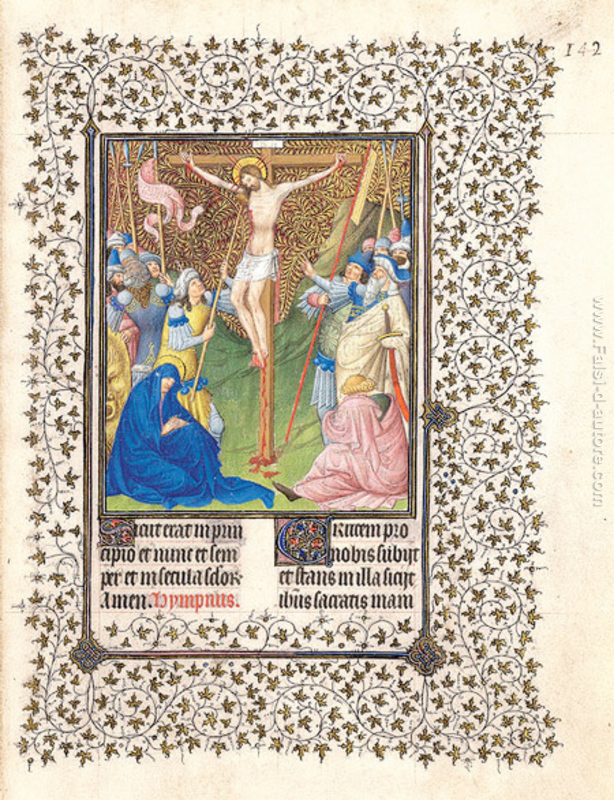 142
Sicut erat in prin
cipio et nunc et sem
per et in secula sclor
Amen. Hympnus.
CRucem pro
nobis subijt
et stans in illa sicijt
ihus sacratis mani
www.Falsi-d-autore.com